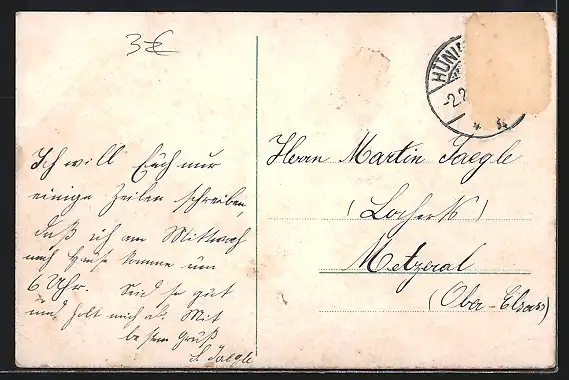 3 €
HÜNI
-2.2
Ich will Euch nur
einige Zeilen schreiben,
daß ich am Mittwoch
nach Hause komme um
6 Uhr. Seid so gut
und holt mich ab. Mit
bestem Gruß
S. Jaegle
Herrn Martin Jaegle
Metzeral
(Ober-Elsass)